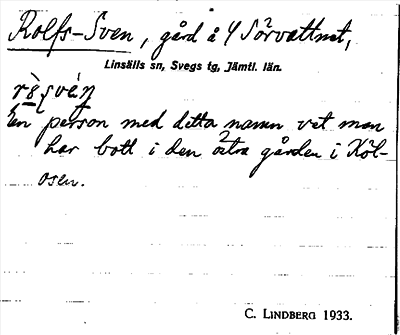 Rolfs-Sven, gård å Y Sörvattnet,
Linsälls sn, Svegs tg, Jämtl. län.
En person med detta namn vet man
har bott i den östra gården i Köl-
osen.
C. LINDBERG 1933.